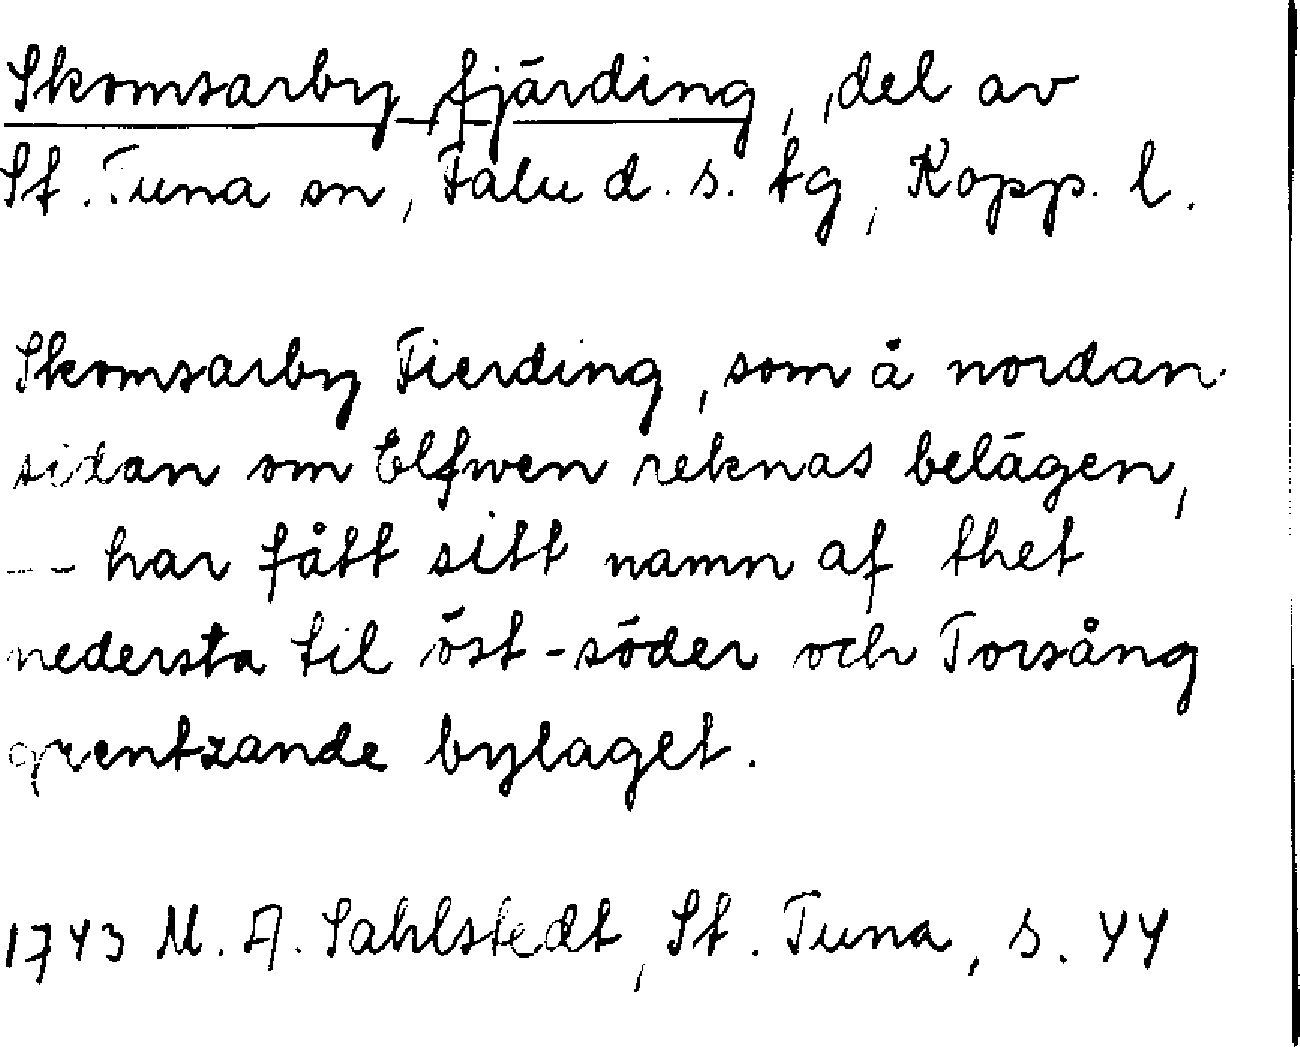 Skomsarby fjärding, del av
St. Tuna sn, Falu d. s. tg, Kopp. l.
Skomsarby Fierding, som å nordan
sidan om Elfwen reknas belägen,
-- har fått sitt namn af thet
nedersta til öst-söder och Torsång
grentzande bylaget.
1743 M. A. Sahlstedt, St. Tuna, s. 44